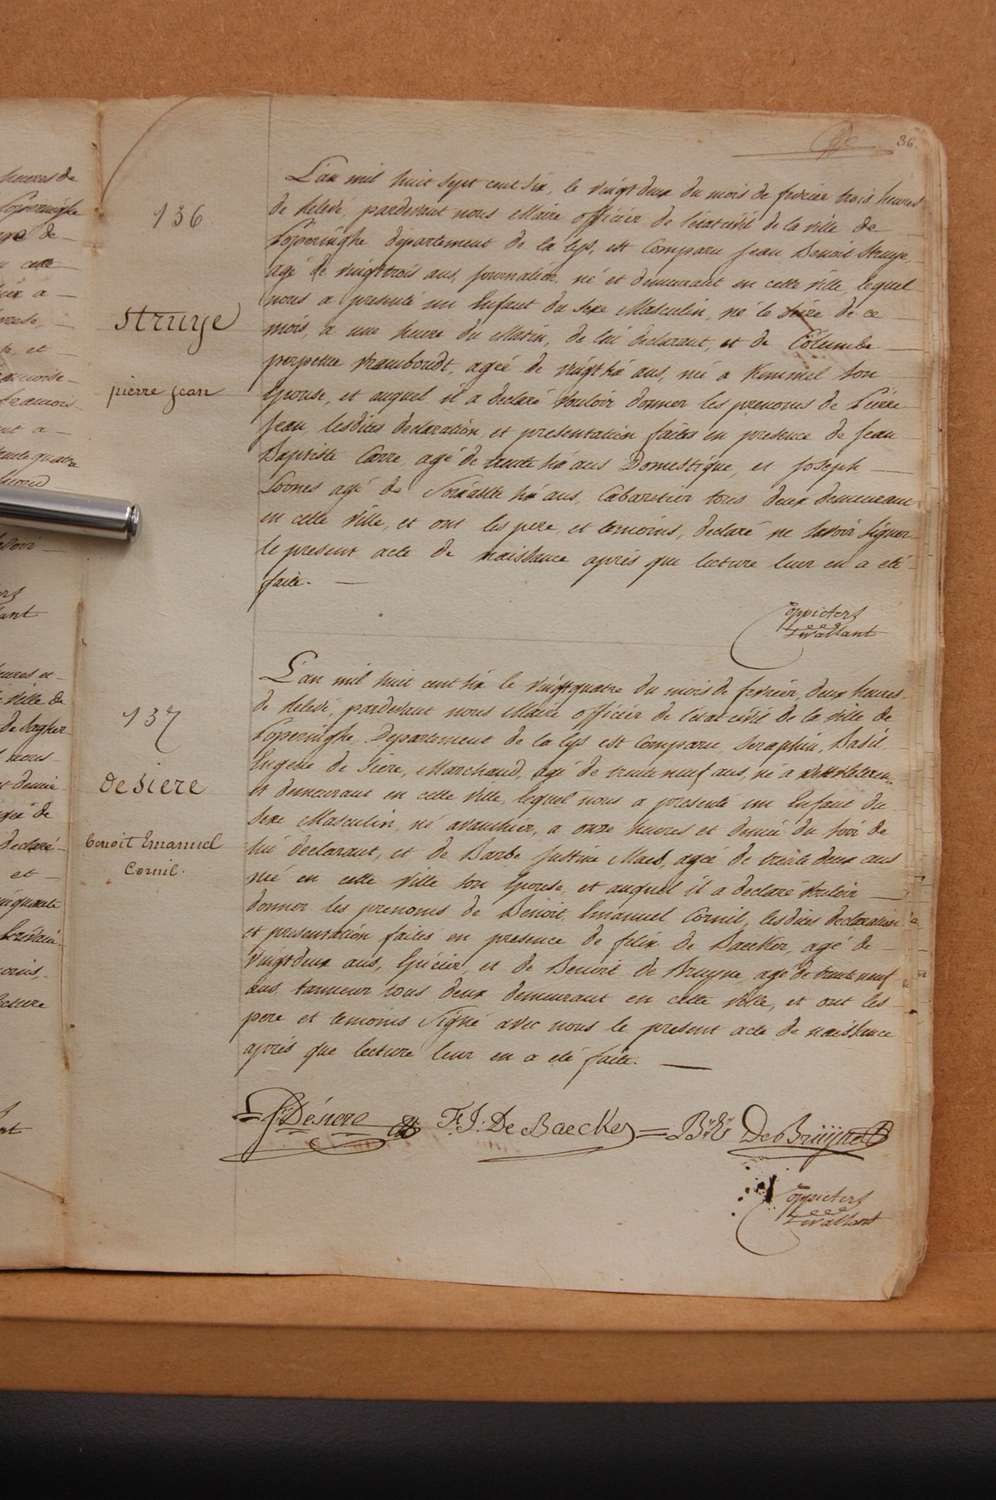 36
136.
Struye
pierre jean
L'an mil huit sept cent six, le vingt deux du mois de fevrier trois heures
de relevé, pardevant nous Maire officier de l'état civil de la ville de
Poperinghe departement de la lys, est Comparu Jean Benoit Struye,
agé de vingt trois ans, journalier, né et demeurant en cette ville, lequel
nous a presenté un Enfant du sexe Masculin, né le de ce
mois, a une heure du Matin, de lui declarant, et de Columbe
perpetue agée de vingt six ans, né a Kemmel son
Epouse, et auquel il a declaré vouloir donner les prenoms de Pierre
Jean lesdites declaration, et presentation faites en presence de Jean
Baptiste Carre agé de trente six ans Domestique, et joseph
agé de Soixante six ans, Cabaretier tous deux demeurant
en cette ville, et ont les pere, et temoins, declaré ne savoir signer
le present acte de naissance après que lecture leur en a été
faite.
137
de Siere
benoit Emanuel
Cornil.
L'an mil huit cent six le vingt quatre du mois de fevrier, deux heures
de relevé, pardevant nous Maire officier de l'état civil de la ville de
Poperinghe Departement de la lys est Comparu, Seraphin, Basil
Eugene de Siere, Marchand, agé de trente neuf ans, né a
et demeurant en cette ville, lequel nous a presenté un Enfant du
sexe Masculin, né avanthier, a onze heures et demie du soir de
lui declarant, et de Barbe Justine Maes, agée de trente deux ans
née en cette ville son Epouse, et auquel il a declaré vouloir
donner les prenoms de Benoit, Emanuel Cornil, lesdites declaration
et presentation faites en presence de felix de Baecker, agé de
vingt deux ans, Epicier, et de Benoit de Bruyne agé de trente neuf
ans, tanneur tous deux demeurant en cette ville, et ont les
pere et temoins Signé avec nous le present acte de naissance
après que lecture leur en a été faite.
DeSiere F. J. De Baecker De Bruyne